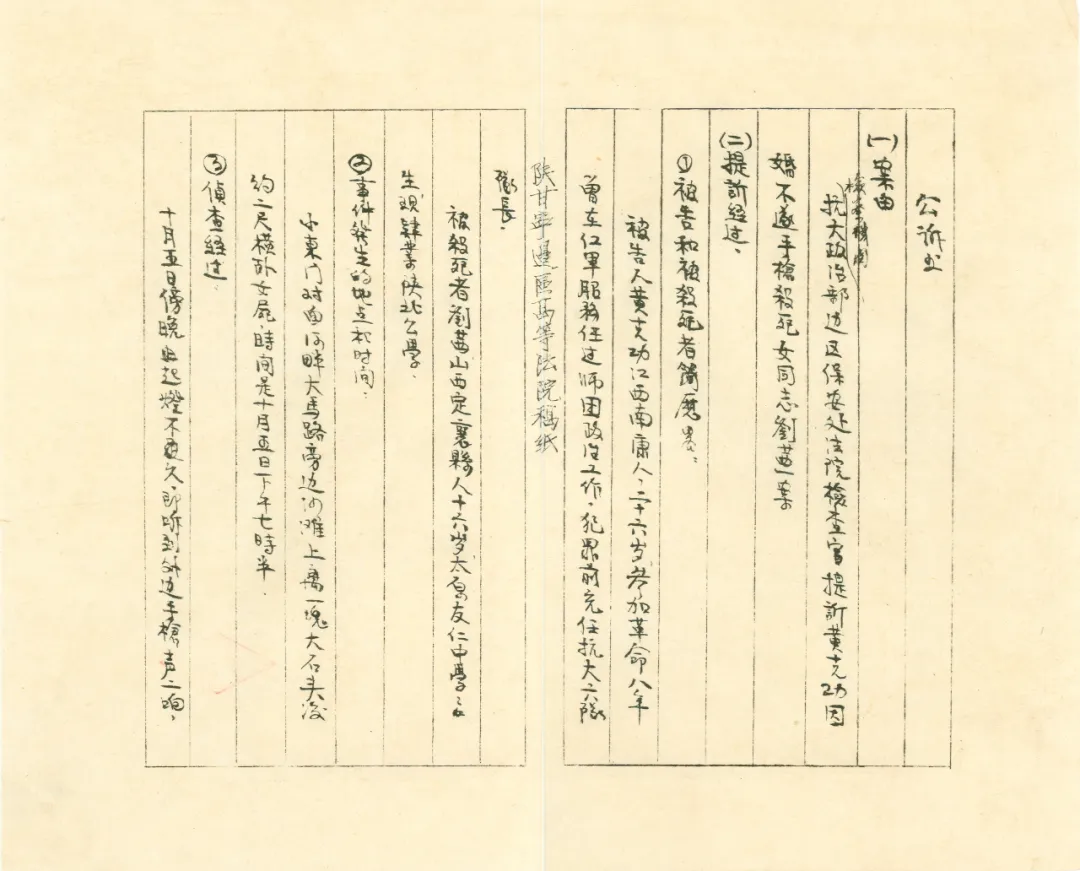 公诉书
(一)案由
檢察機関
抗大政治部边区保安处法院檢查官提訴黄克功因
婚不遂手槍殺死女同志劉茜一案
(二)提訴经过、
①被告和被殺死者簡历畧：
被告人黄克功江西南康人，二十六岁参加革命八年
曾在红軍服務任过师团政治工作，犯罪前充任抗大六隊
陕甘寧邊區高等法院稿紙
隊長。
被殺死者劉茜山西定襄縣人十六岁太原友仁中學
生现肄業陕北公學，
②事件發生的地点和时间：
小東门对面河畔大馬路旁边沙滩上离一塊大石头
约二尺横卧女屍，時间是十月五日下午七時半
③偵查经过：
十月五日傍晚 起燈不更久，即听到外边手槍声二响，